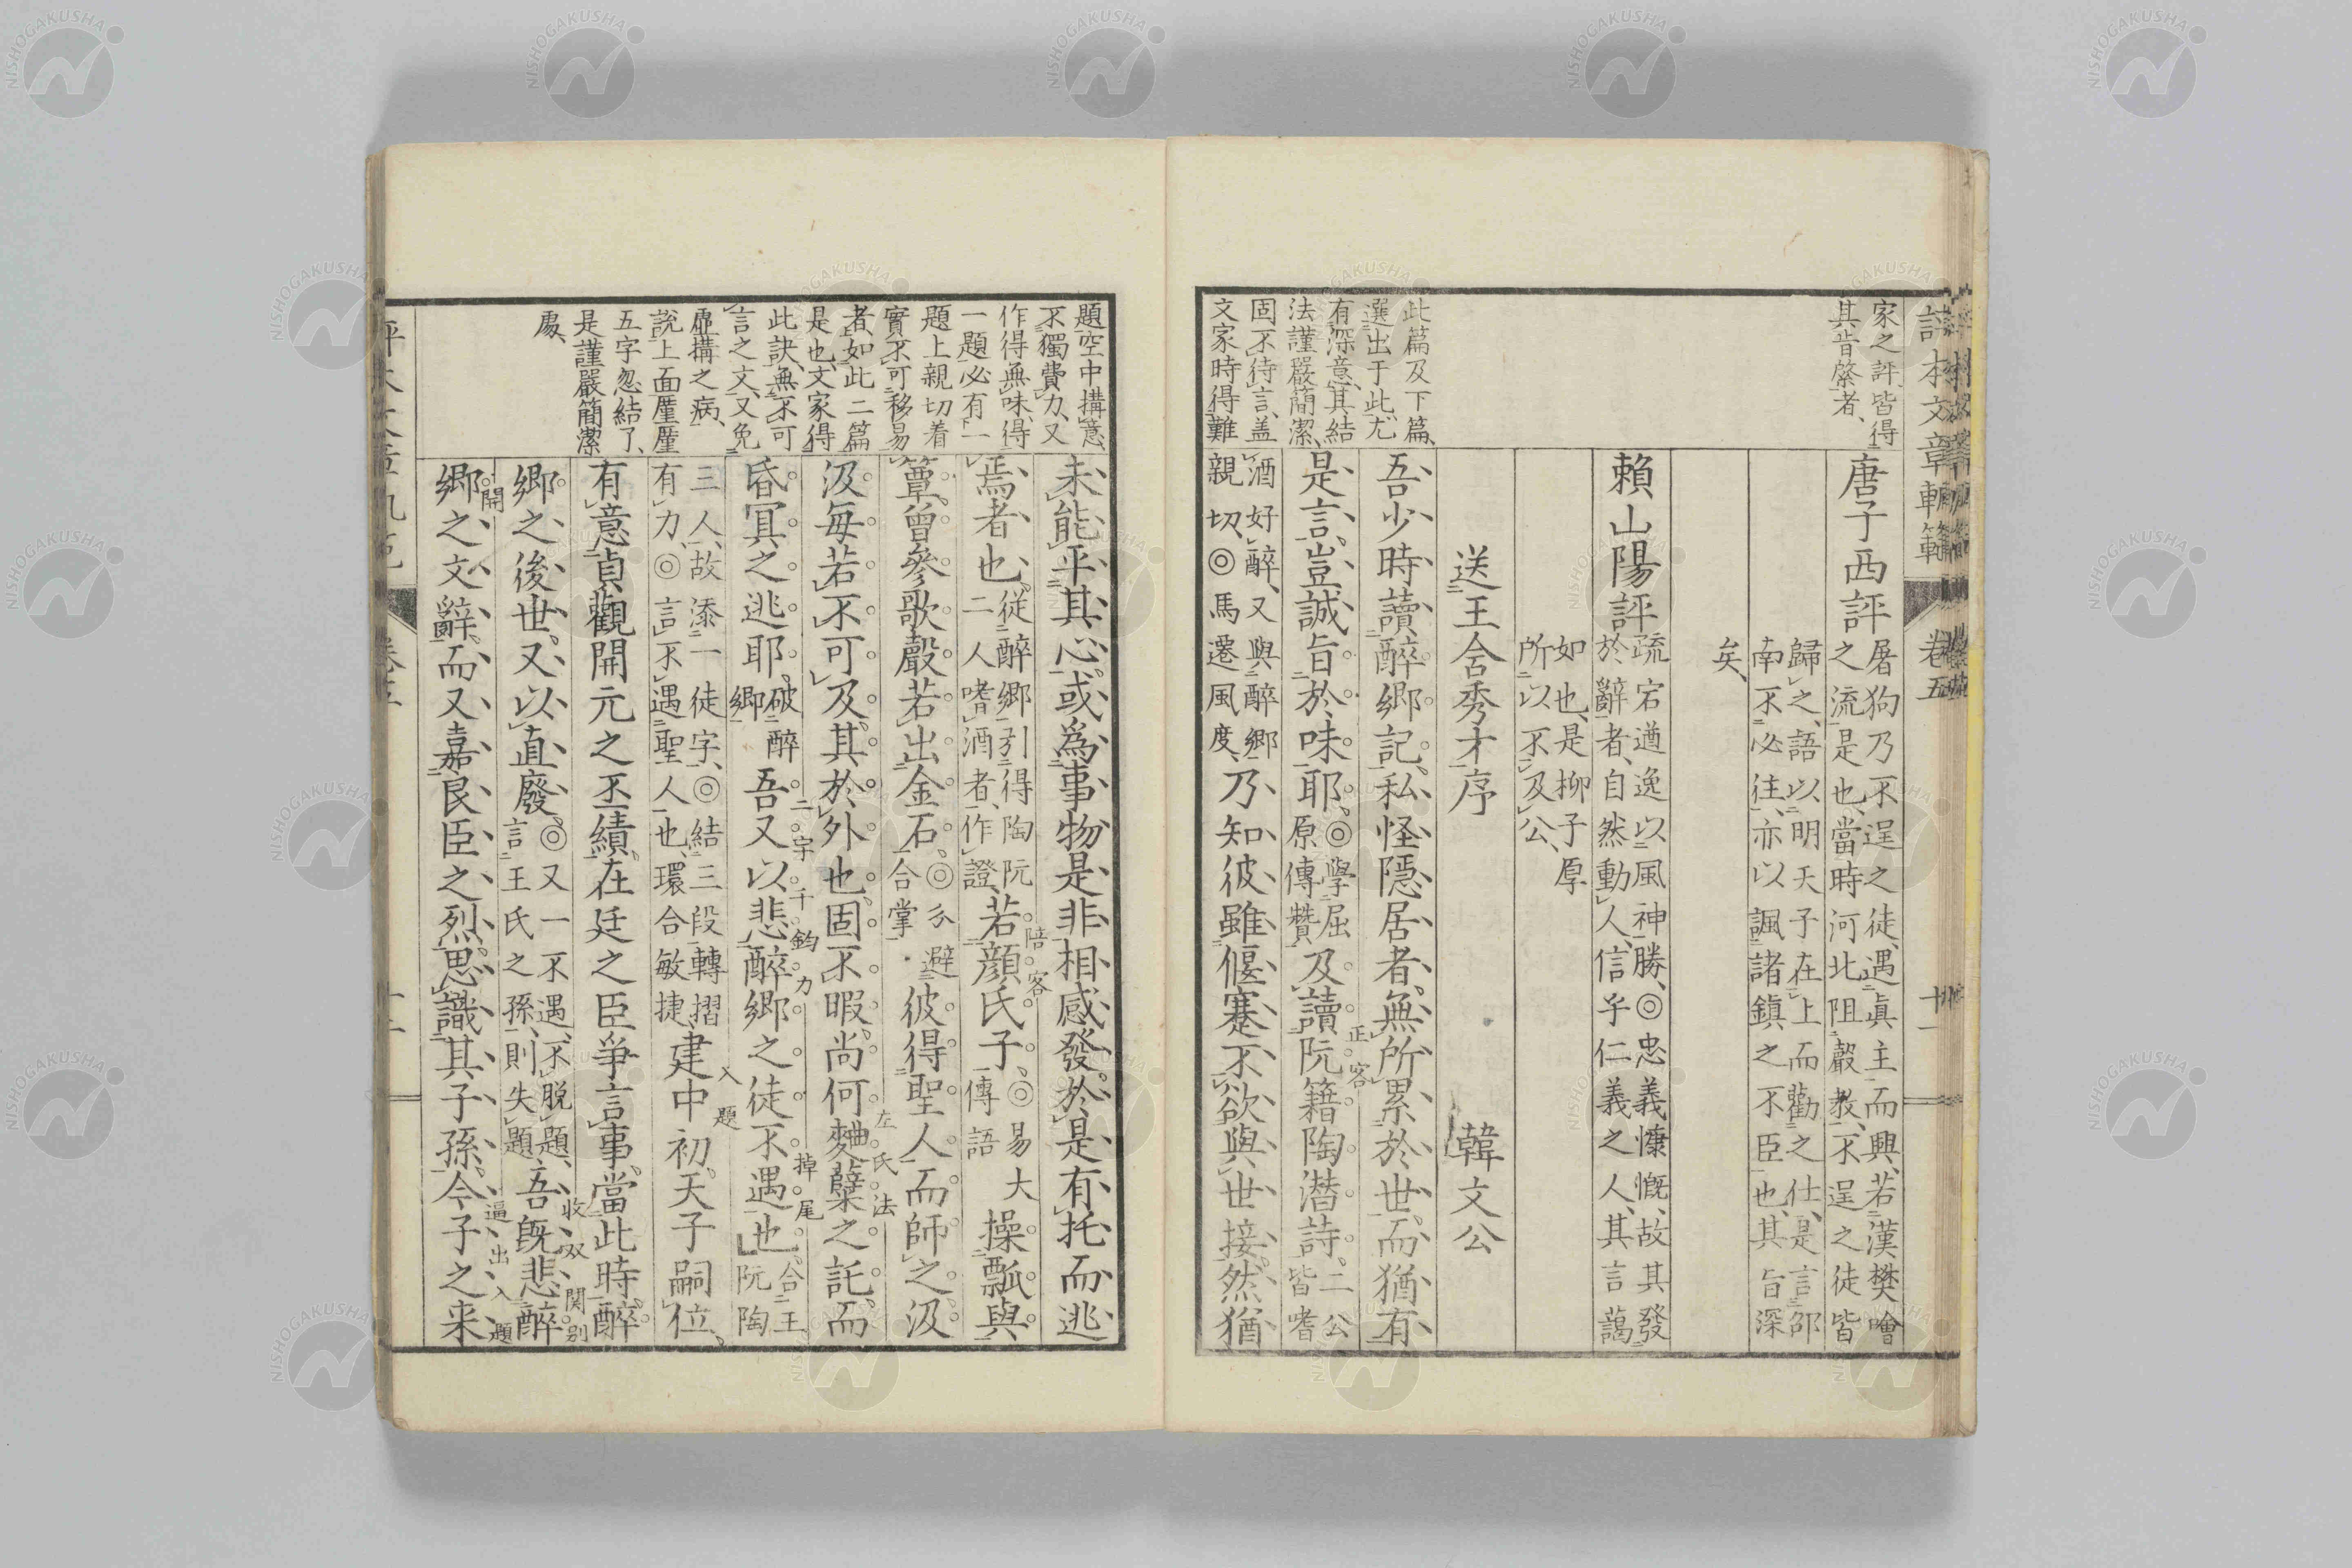 家之評皆得
其肯綮者、
唐子西評
屠狗乃不逞之徒、遇眞主而興、若漢樊噲
之流是也、當時河北阻聲教、不逞之徒皆
歸之、語以明天子在上而勸之仕、是言邵
南不必往、亦以諷諸鎮之不臣也、其旨深
矣、
賴山陽評
疏宕遒逸以風神勝、◎忠義慷慨、故其發
於辭者、自然動人、信乎仁義之人、其言藹
如也、是柳子厚
所以不及公、
送王含秀才序
韓文公
此篇及下篇、
選出于此、尤
有深意、其結
法謹嚴簡潔、
固不待言、盖
文家時得難
吾少時讀醉鄉記、私怪隱居者、無所累於世、而猶有
是言、豈誠旨於味耶、◎
擧屈
原傳贊
及讀阮籍陶潛詩、
正客
二公
皆嗜
酒好醉、又與醉鄉
親切、◎馬遷風度、
乃知彼雖偃蹇不欲與世接、然猶
評本文章軌範
卷五
十一
題空中搆意、
不獨費力、又
作得無味、得
一題必有一
題上親切着
實不可移易
者、如此二篇
是也、文家得
此訣、無不可
言之文、又免
虛搆之病、
說上面厓厓
五字忽結了、
是謹嚴簡潔
處、
未能平其心、或為事物是非相感發、於是有托而逃
焉者也、
從醉鄉引得陶阮
二人嗜酒者、作證、
陪客
若顏氏子、
◎易大
傳語
操瓢與
簞、曾參歌聲若出金石、
◎分避
合掌
彼得聖人而師之、汲
汲每若不可及、其於外也、固不暇、尚何麴櫱之託、而
左氏法
昏冥之逃耶、
破醉
鄉
吾又以悲醉鄉之徒不遇也、
二字千鈞力
掉尾
合王
阮陶
三人、故添一徒字、◎結三段轉摺
有力、◎言不遇聖人也、環合敏捷、
建中初、天子嗣位、
入題
有意貞觀開元之丕績、在廷之臣爭言事、當此時、醉
鄉之後世、又以直廢、
◎又一不遇、不脱題、
言王氏之孫、則失題、
吾既悲醉
収双関別
開
鄉之文辭、而又嘉良臣之烈、思識其子孫、今子之来
逼出入題
卷五
十二